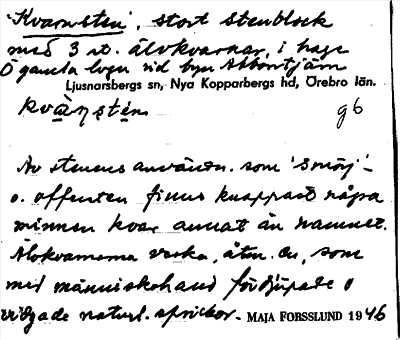 "Kvarnsten", stort stenblock
med 3 st. älvkvarnar, i hage
Ö gamla vägen vid byn Abborrtjärn
Ljusnarsbergs sn, Nya Kopparbergs hd, Örebro län.
g 6
Av stenens användn. som 'smörj'-
o. offersten finns knappast några
minnen kvar annat än namnet.
Älvkvarnarna verka, åtm. en, som
med människohand fördjupade o
vidgade naturl. sprickor. MAJA FORSSLUND 1946